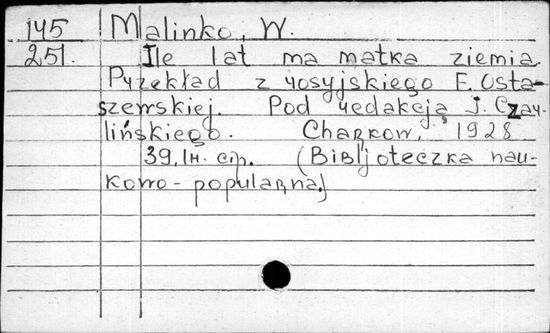 145 Malinko, W.
251. Ile lat ma matka ziemia.
Przekład z rosyjskiego F. Osta-
szewskiej. Pod redakcją J. Czar-
lińskiego. Charkow, 1928
39, IH. стр. (Bibljoteczka nau-
kowo-popularna.)